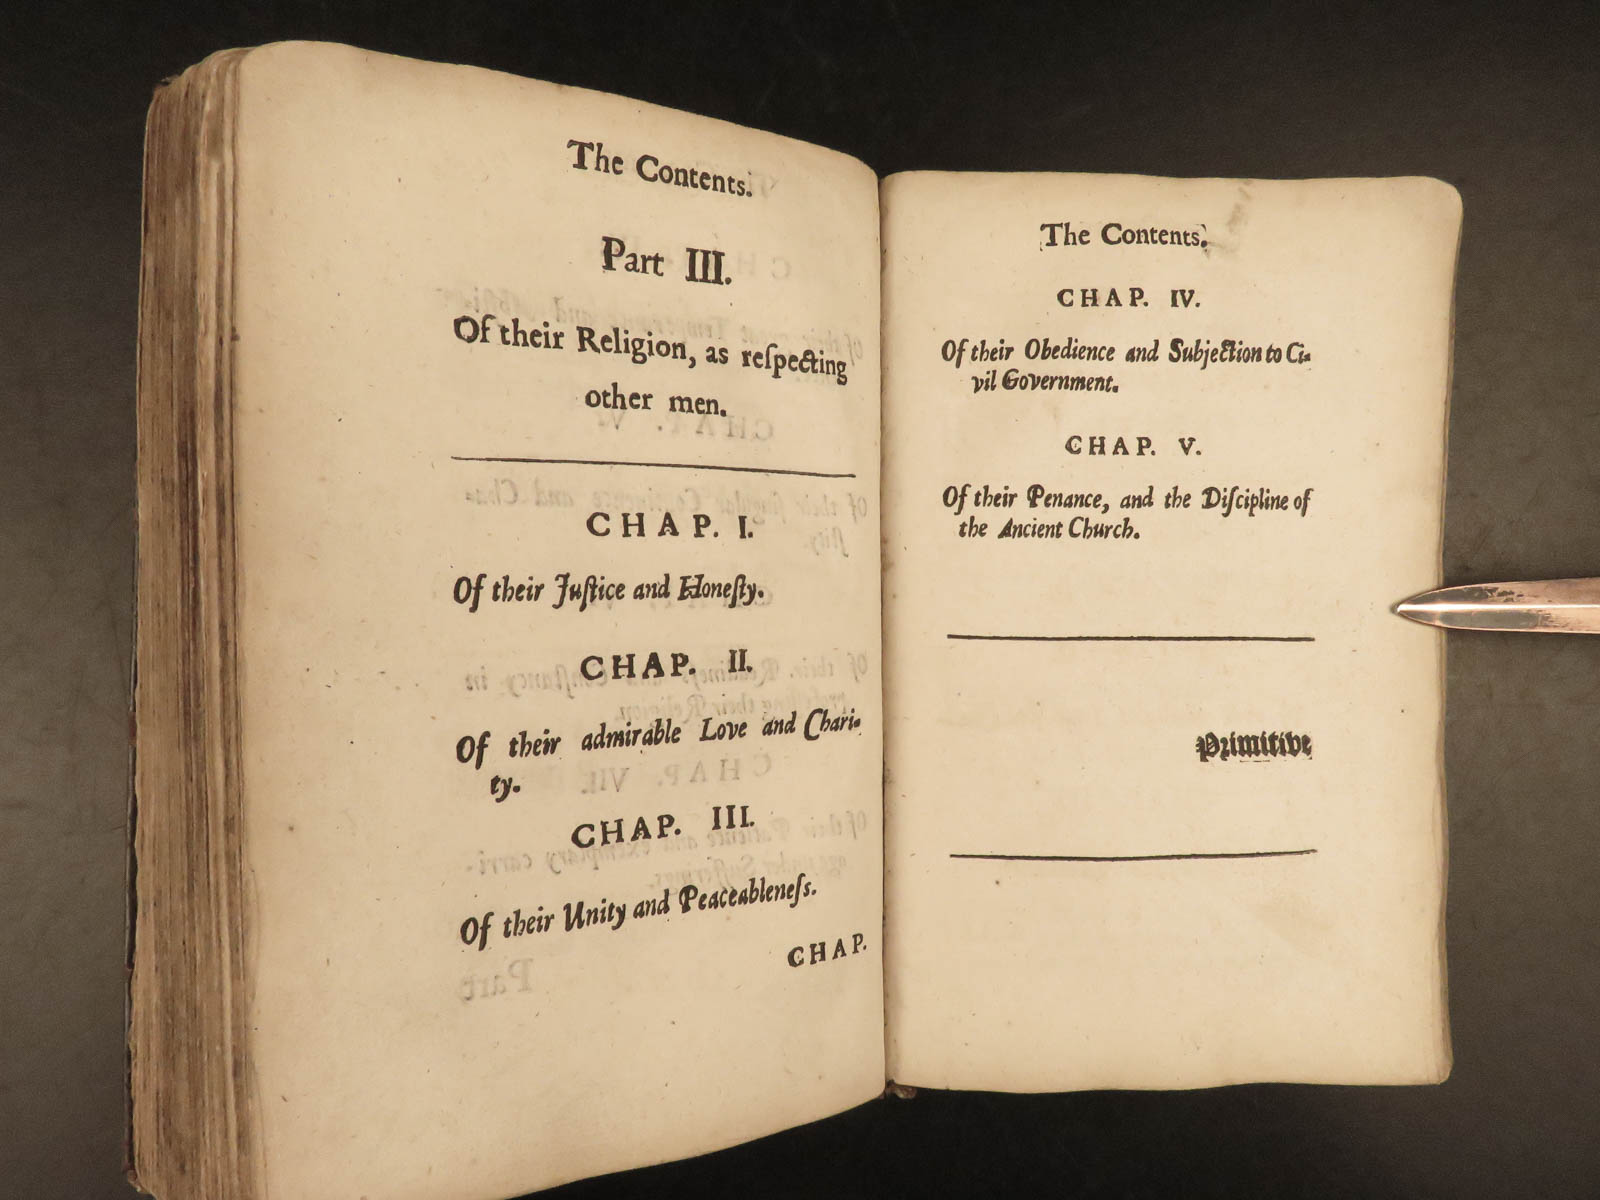 The Contents.
Part III.
Of their Religion, as reſpecting
other men.
CHAP. I.
Of their Juſtice and Honeſty.
CHAP. II.
Of their admirable Love and Chari-
ty.
CHAP. III.
Of their Unity and Peaceableneſs.
CHAP.
The Contents.
CHAP. IV.
Of their Obedience and Subjection to Ci-
vil Government.
CHAP. V.
Of their Penance, and the Diſcipline of
the Ancient Church.
Primitive